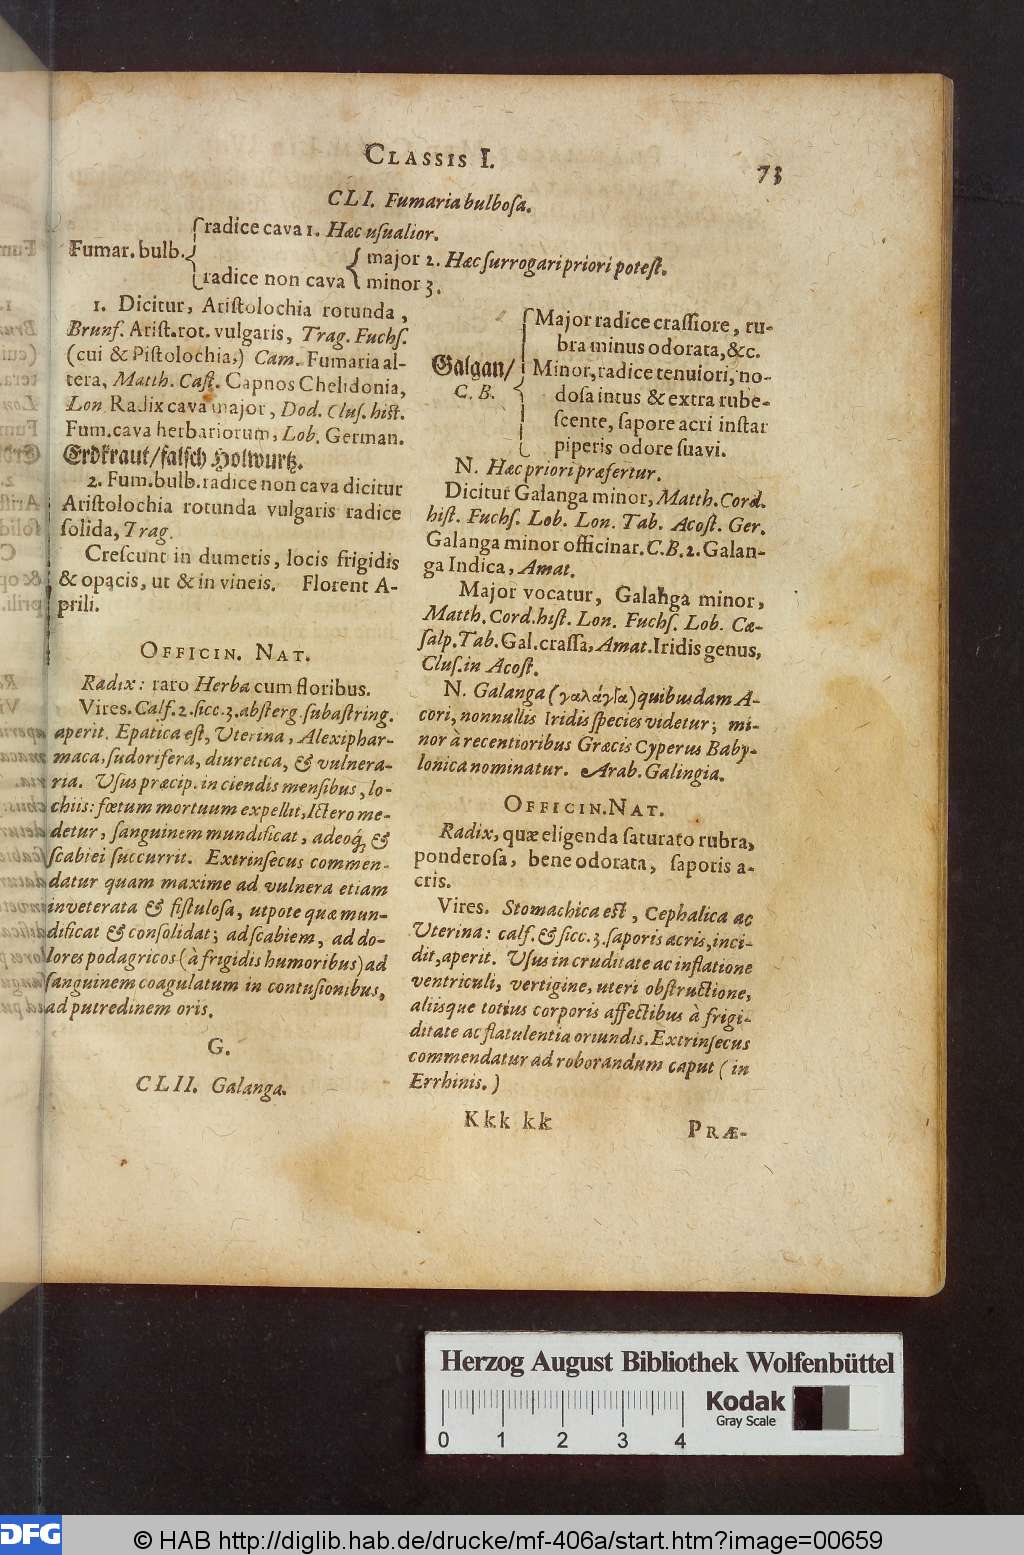 CLASSIS I.
73
CLI. Fumaria bulboſa.
Fumar. bulb.
radice cava 1. Hæc uſualior.
radice non cava
major 2. Hæc ſurrogari priori poteſt.
minor 3.
1. Dicitur, Ariſtolochia rotunda,
Brunf. Ariſt. rot. vulgaris, Trag. Fuchſ.
(cui & Piſtolochia,) Cam. Fumaria al-
tera, Matth. Caſt. Capnos Chelidonia,
Lon Radix cava major, Dod. Cluſ. hiſt.
Fum. cava herbariorum, Lob. German.
Erdkraut/falſch Holwurtz.
2. Fum. bulb. radice non cava dicitur
Ariſtolochia rotunda vulgaris radice
ſolida, Trag.
Creſcunt in dumetis, locis frigidis
& opacis, ut & in vineis. Florent A-
prili.
OFFICIN. NAT.
Radix: raro Herba cum floribus.
Vires. Calf. 2. ſicc. 3. abſterg. ſubaſtring.
aperit. Epatica eſt, Uterina, Alexiphar-
maca, ſudorifera, diuretica, & vulnera-
ria. Uſus præcip. in ciendis menſibus, lo-
chiis: fœtum mortuum expellit, Ictero me-
detur, ſanguinem mundificat, adeoq́ꝫ &
ſcabiei ſuccurrit. Extrinſecus commen-
datur quam maxime ad vulnera etiam
inveterata & fiſtuloſa, utpote quæ mun-
dificat & conſolidat; ad ſcabiem, ad do-
lores podagricos (à frigidis humoribus) ad
ſanguinem coagulatum in contuſionibus,
ad putredinem oris.
G.
CLII. Galanga.
Galgan/
C. B.
Major radice craſſiore, ru-
bra minus odorata, &c.
Minor, radice tenuiori, no-
doſa intus & extra rube-
ſcente, ſapore acri inſtar
piperis odore ſuavi.
N. Hæc priori præfertur.
Dicitur Galanga minor, Matth. Cord.
hiſt. Fuchſ. Lob. Lon. Tab. Acoſt. Ger.
Galanga minor officinar. C. B. 2. Galan-
ga Indica, Amat.
Major vocatur, Galanga minor,
Matth. Cord. hiſt. Lon. Fuchſ. Lob. Cæ-
ſalp. Tab. Gal. craſſa, Amat. Iridis genus,
Cluſ. in Acoſt.
N. Galanga (γαλάγγα) quibusdam A-
cori, nonnullis Iridis ſpecies videtur; mi-
nor à recentioribus Græcis Cyperus Baby-
lonica nominatur. Arab. Galingia.
OFFICIN. NAT.
Radix, quæ eligenda ſaturato rubra,
ponderoſa, bene odorata, ſaporis a-
cris.
Vires. Stomachica eſt, Cephalica ac
Uterina: calf. & ſicc. 3. ſaporis acris, inci-
dit, aperit. Uſus in cruditate ac inflatione
ventriculi, vertigine, uteri obſtructione,
aliisque totius corporis affectibus à frigi-
ditate ac flatulentia oriundis. Extrinſecus
commendatur ad roborandum caput (in
Errhinis.)
Kkk kk
PRÆ-
Herzog August Bibliothek Wolfenbüttel
Kodak
Gray Scale
0 1 2 3 4
DFG
© HAB http://diglib.hab.de/drucke/mf-406a/start.htm?image=00659